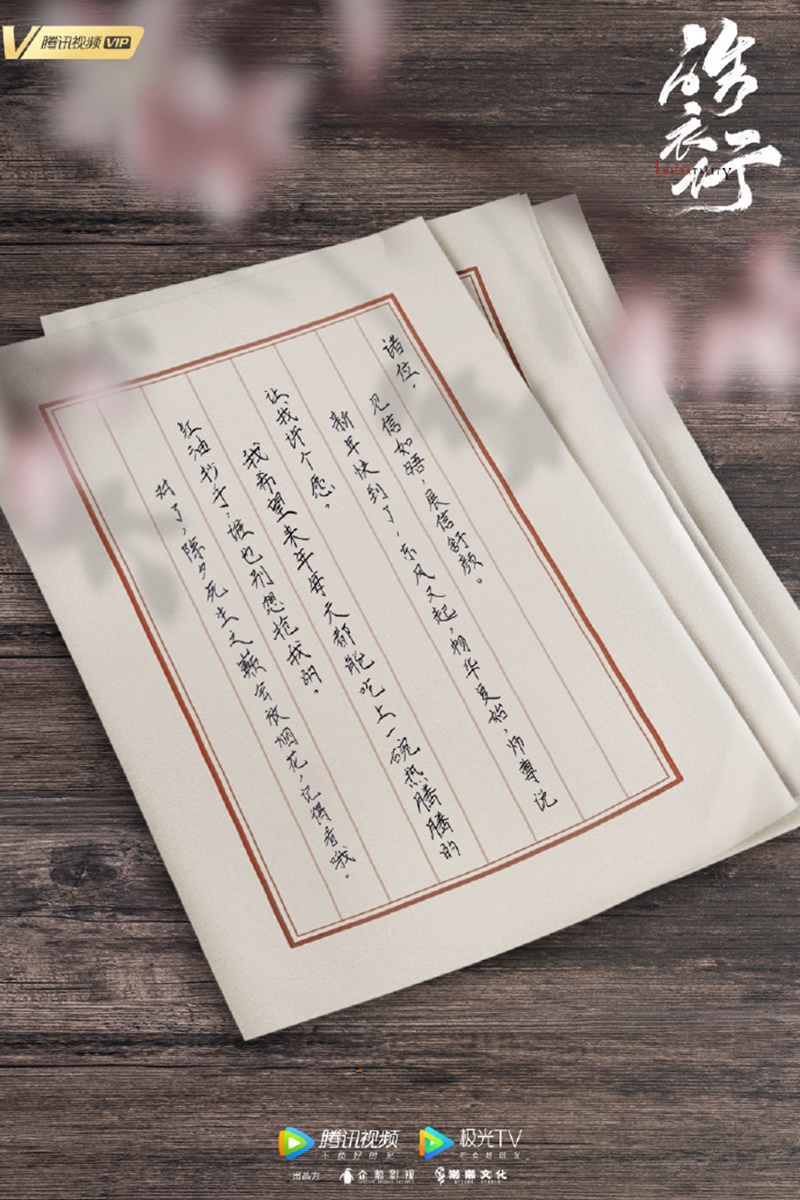 腾讯视频 VIP
皓衣行
IMMORTALITY
诸位，
见信如晤，展信舒颜。
新年快到了，东风又起，物华更始，师尊说
让我许个愿。
我希望来年每天都能吃上一碗热腾腾的
红油抄手，谁也别想抢我的。
对了，除夕死生之巅会放烟花，记得看哦。
腾讯视频
不负好时光
极光TV
不负好时光
出品方
企鹅影视